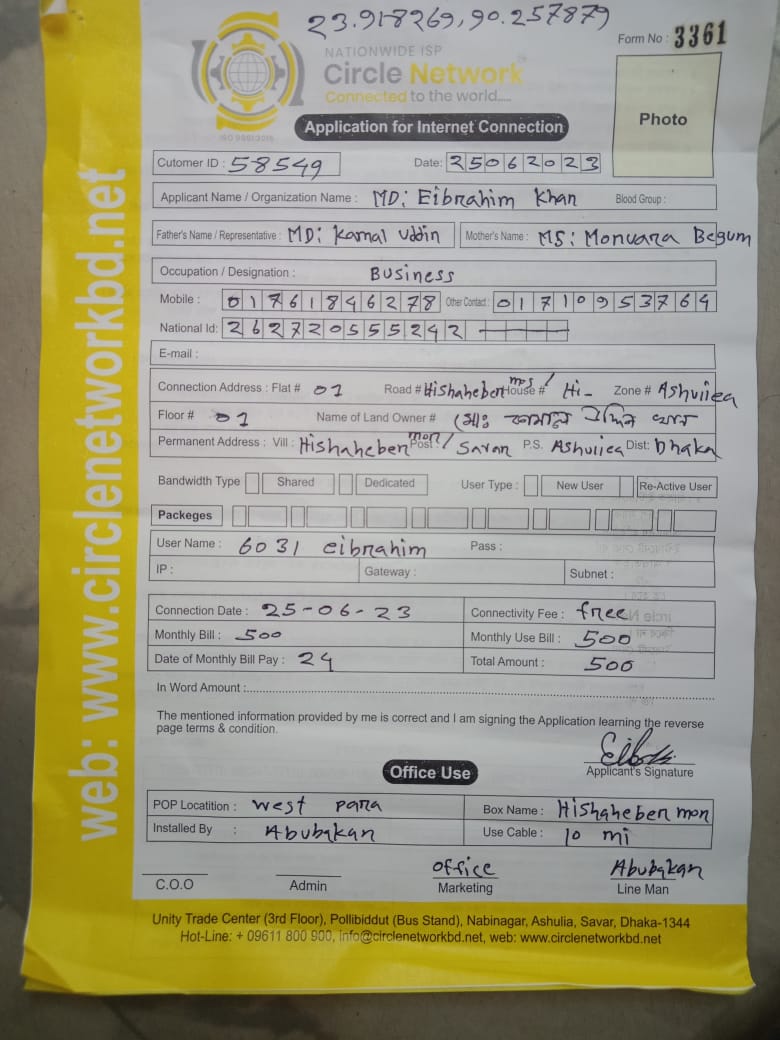 23.918269,90.257879
NATIONWIDE ISP
Form No : 3361
Circle Network
Connected to the world.....
Photo
Application for Internet Connection
Cutomer ID : 58549 Date: 25062023
Applicant Name / Organization Name : MD: Eibrahim Khan Blood Group :
Father's Name / Representative : MD: Kamal Uddin Mother's Name : MS: Monuara Begum
Occupation / Designation : Business
Mobile : 01761846278 Other Contact : 01710953764
National Id: 2627205555242
E-mail :
Connection Address : Flat # 01 Road # Hishaheber mos/ House # Hi- Zone # Ashuiiea
Floor # 01 Name of Land Owner # (মোঃ কামাল উদ্দিন খান
Permanent Address : Vill : Hishaheber mon/ Post : Savar P.S. Ashuiiea Dist: Dhaka
Bandwidth Type Shared Dedicated User Type : New User Re-Active User
Packeges
User Name : 6031 eibrahim Pass :
IP : Gateway : Subnet :
Connection Date : 25-06-23 Connectivity Fee : free
Monthly Bill : 500 Monthly Use Bill : 500
Date of Monthly Bill Pay : 24 Total Amount : 500
In Word Amount :
The mentioned information provided by me is correct and I am signing the Application learning the reverse
page terms & condition.
Applicant's Signature
Office Use
POP Locatition : west para Box Name : Hishaheber mon
Installed By : Abubakan Use Cable : 10 mi
office Abubakan
C.O.O Admin Marketing Line Man
Unity Trade Center (3rd Floor), Pollibiddut (Bus Stand), Nabinagar, Ashulia, Savar, Dhaka-1344
Hot-Line: + 09611 800 900, info@circlenetworkbd.net, web: www.circlenetworkbd.net
web: www.circlenetworkbd.net